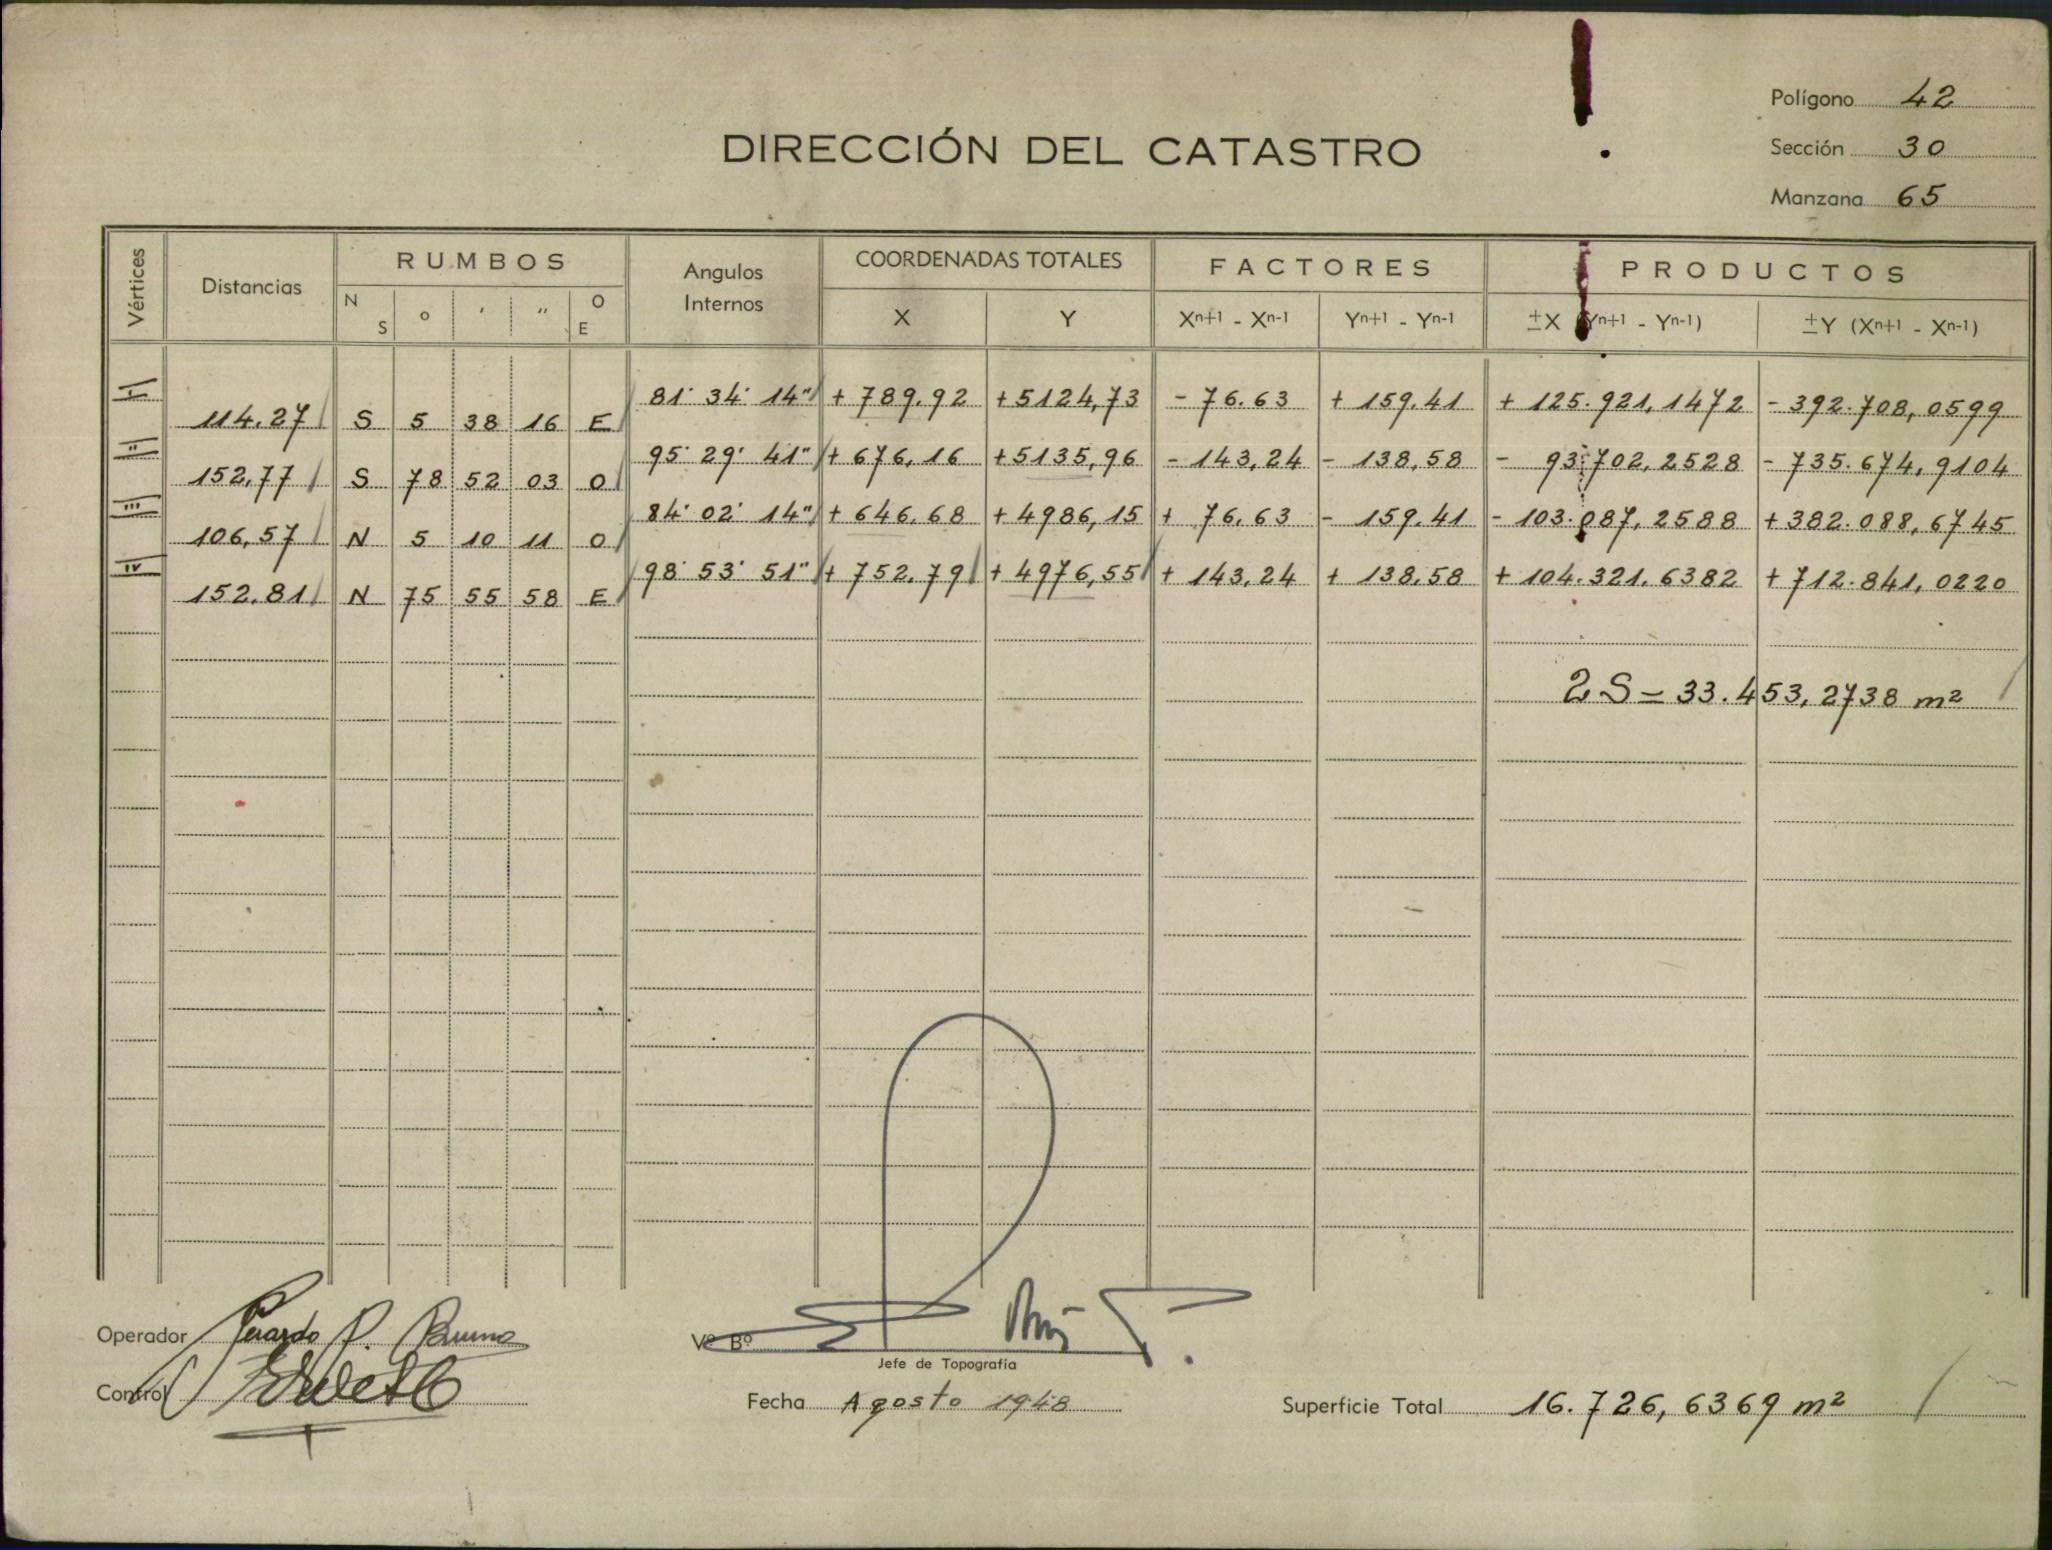 Polígono 42
DIRECCIÓN DEL CATASTRO
Sección 30
Manzana 65
Vértices Distancias RUMBOS Angulos Internos COORDENADAS TOTALES FACTORES PRODUCTOS
N S ° ' " O E X Y Xn+1 - Xn-1 Yn+1 - Yn-1 ±X (Yn+1 - Yn-1) ±Y (Xn+1 - Xn-1)
I 81° 34' 14" + 789.92 +5124,73 - 76.63 + 159.41 + 125.921,1472 - 392.708,0599
114.27 S 5 38 16 E
II 95° 29' 41" + 676,16 +5135,96 - 143,24 - 138,58 - 93.702,2528 - 735.674,9104
152,77 S 78 52 03 O
III 84° 02' 14" + 646.68 + 4986,15 + 76,63 - 159.41 - 103.087,2588 + 382.088,6745
106,57 N 5 10 11 O
IV 98° 53' 51" + 752.79 + 4976,55 + 143,24 + 138,58 + 104.321.6382 + 712.841,0220
152.81 N 75 55 58 E
2 S = 33.453,2738 m²
Operador Gerardo P. Bruno
Vº Bº
Jefe de Topografía
Control
Fecha Agosto 1948
Superficie Total 16.726,6369 m²